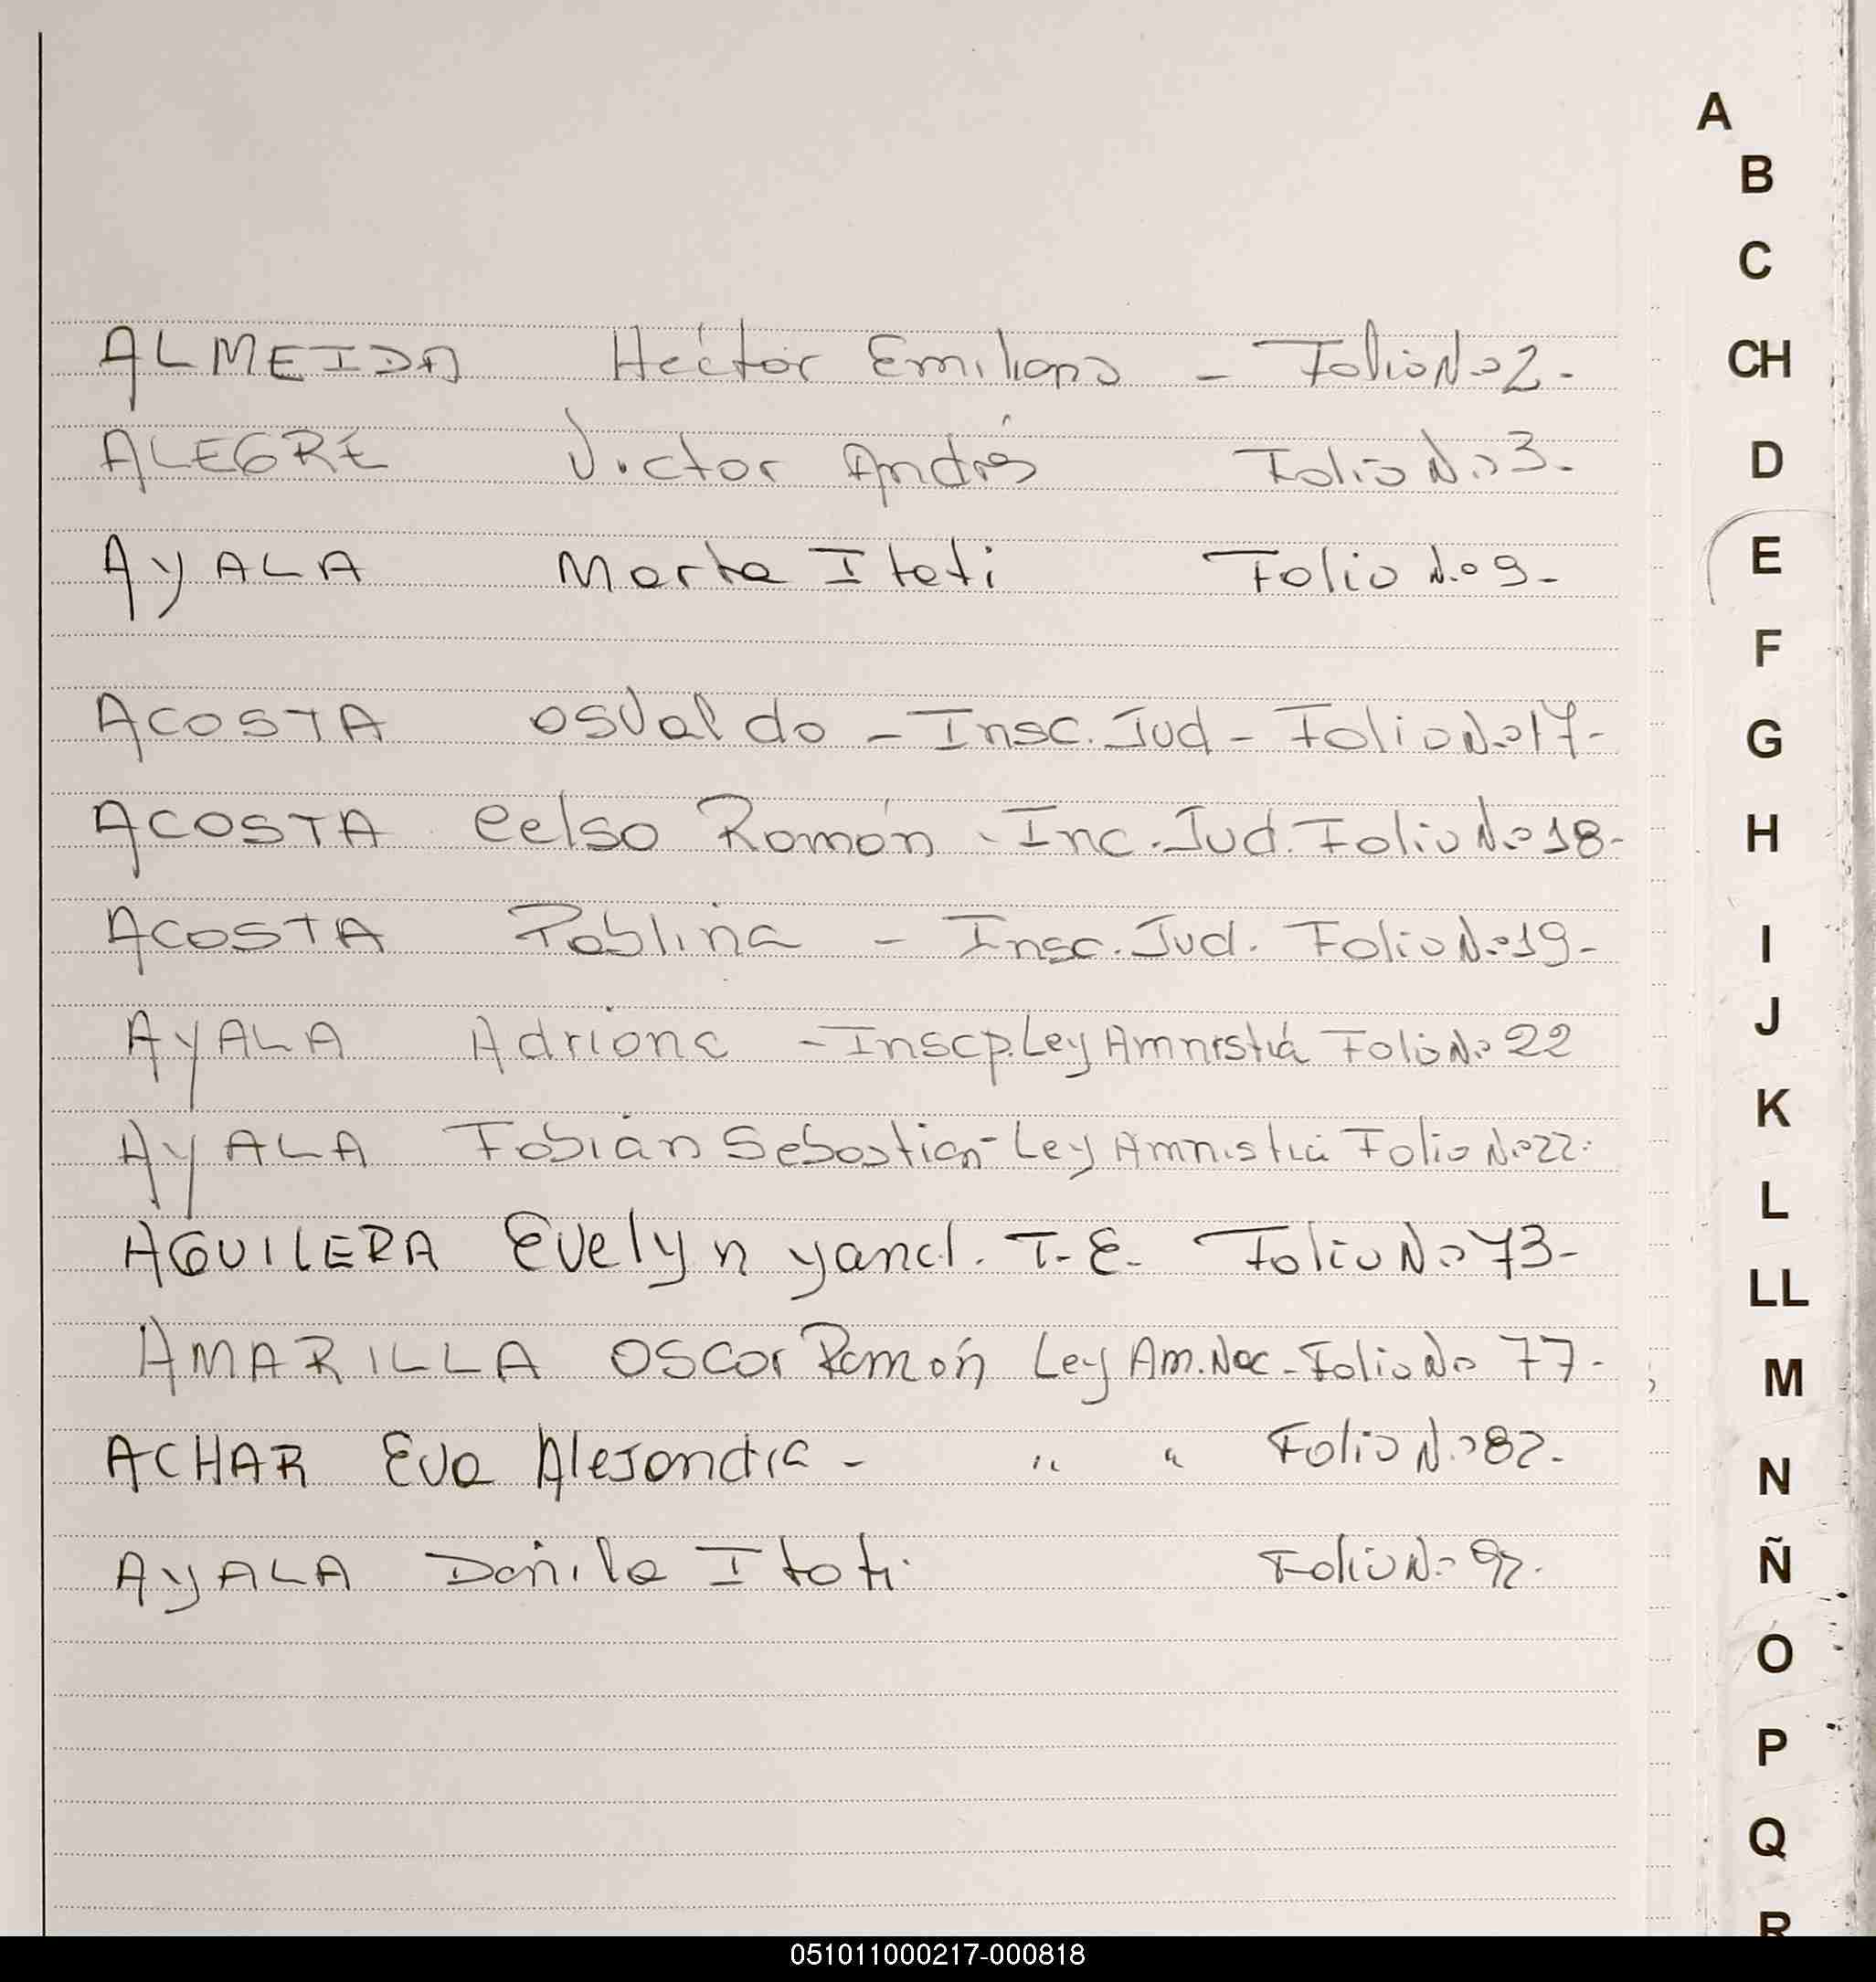 ALMEIDA Héctor Emiliano - Folio Nº 2-
ALEGRE Victor Andrés Folio Nº 3-
AYALA Marta Itati Folio Nº 9-
ACOSTA Osvaldo - Insc. Jud - Folio Nº 17-
ACOSTA Celso Ramón - Inc. Jud. Folio Nº 18-
ACOSTA Pablina - Insc. Jud. Folio Nº 19-
AYALA Adriana - Inscp. Ley Amnistiá Folio Nº 22
AYALA Fabián Sebastian - Ley Amnistia Folio Nº 22.
AGUILERA Evelyn yanel. T.E. Folio Nº 73-
AMARILLA Oscar Ramón Ley Am. Nac - Folio Nº 77-
ACHAR Eva Alejandra - " " Folio Nº 82-
AYALA Danila Itati Folio Nº 92-
A
B
C
CH
D
E
F
G
H
I
J
K
L
LL
M
N
Ñ
O
P
Q
R
051011000217-000818